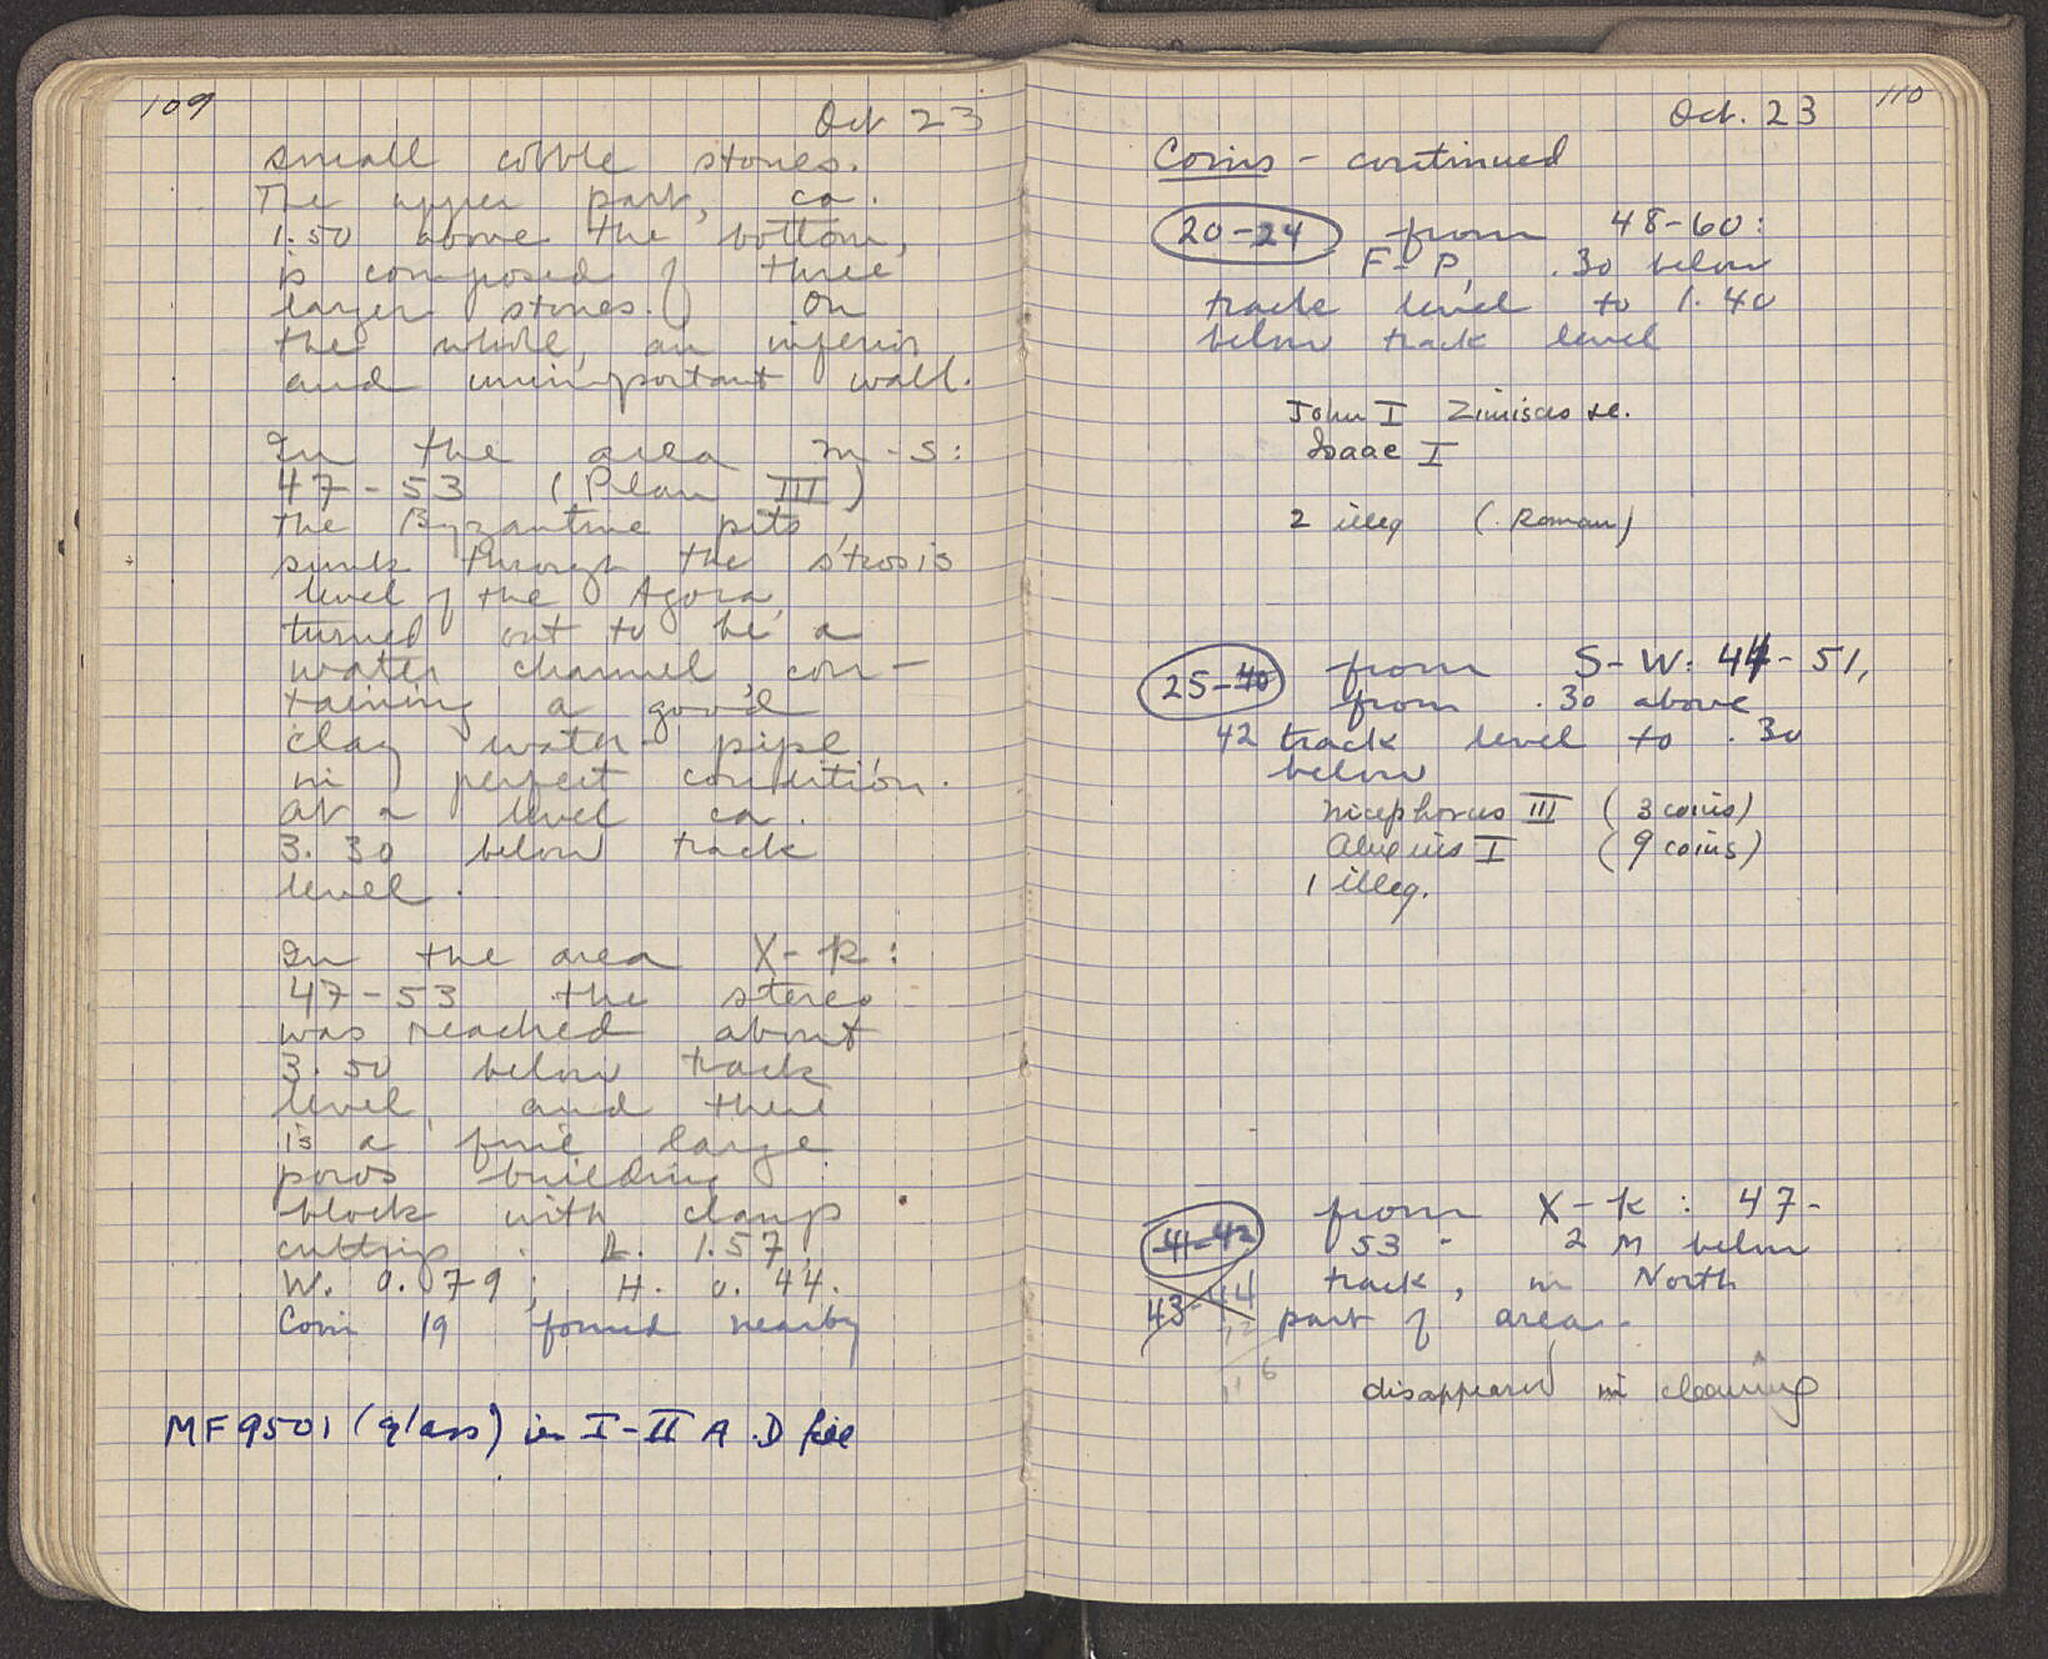 109
Oct 23
small cobble stones.
The upper part, ca.
1.50 above the bottom,
is composed of three
larger stones. On
the whole, an inferior
and unimportant wall.
In the area M-S:
47-53 (Plan III)
the Byzantine pits
sunk through the strosis
level of the Agora,
turned out to be a
water channel, con-
taining a good
clay water pipe,
in perfect condition.
At a level ca.
3.30 below track
level.
In the area X-K:
47-53 the stereo
was reached about
3.50 below track
level, and there
is a fine large
poros building
block with clamp
cuttings. L. 1.57,
W. 0.79; H. 0.44.
Coin 19 found nearby
MF 9501 (glass) in I-II A.D fill
110
Oct. 23
Coins - continued
20-24 from 48-60:
F-P, .30 below
track level to 1.40
below track level
John I Zimisces
Isaac I
2 illeg (Roman)
25-40 from S-W: 44-51,
from .30 above
42 track level to .30
below
Nicephorus III (3 coins)
Alexius I (9 coins)
1 illeg.
41-42 from X-K: 47-
53 - 2 M below
43-44 track, in North
part of area.
disappeared in cleaning